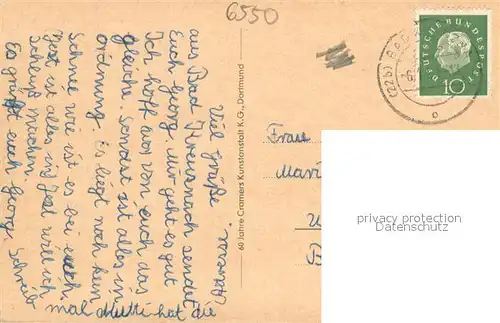 6550
DEUTSCHE BUNDESPOST
10
(22b) BAD
Viel Grüße
aus Bad Kreuznach sendet
Euch Georg. Mir geht es gut
Ich hoff avor von euch das
gleiche. Sondst ist alles in
ordnung. Es liegt noch kein
Schnie wie ist es bei euch.
Jezt ist alles in
Schluß machen.
Es grüßt euch Georg.
Schreib
mal Mutti hat die
60 Jahre Cramers Kunstanstalt K.G., Dortmund
Frau
Mari
privacy protection
www.ansichtskarten-center.de